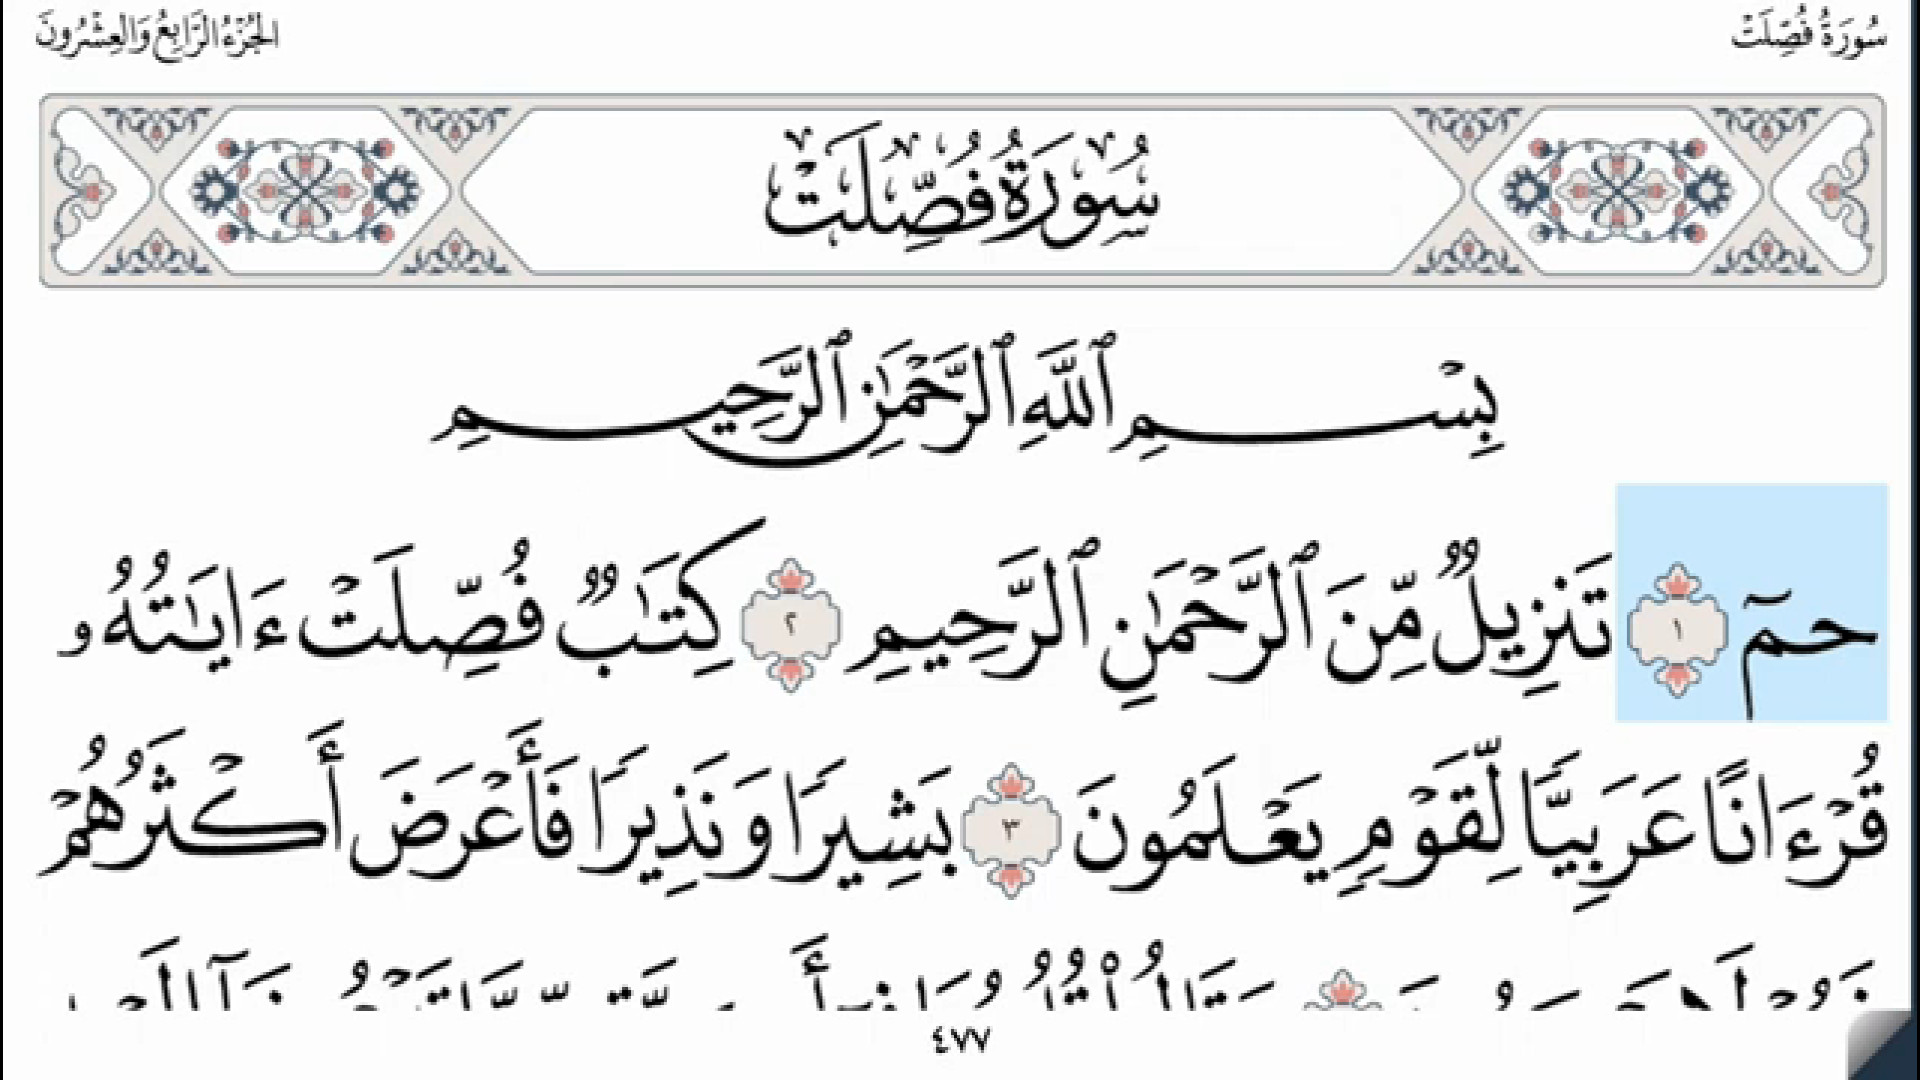 سُورَةُ فُصِّلَتْ
الجُزْءُ الرَّابِعُ وَالْعِشْرُونَ
سُورَةُ فُصِّلَتْ
بِسْمِ ٱللَّهِ ٱلرَّحْمَٰنِ ٱلرَّحِيمِ
حمٓ ١ تَنزِيلٌ مِّنَ ٱلرَّحْمَٰنِ ٱلرَّحِيمِ ٢ كِتَٰبٌ فُصِّلَتْ ءَايَٰتُهُۥ
قُرْءَانًا عَرَبِيًّا لِّقَوْمٍ يَعْلَمُونَ ٣ بَشِيرًا وَنَذِيرًا فَأَعْرَضَ أَكْثَرُهُمْ
٤٧٧